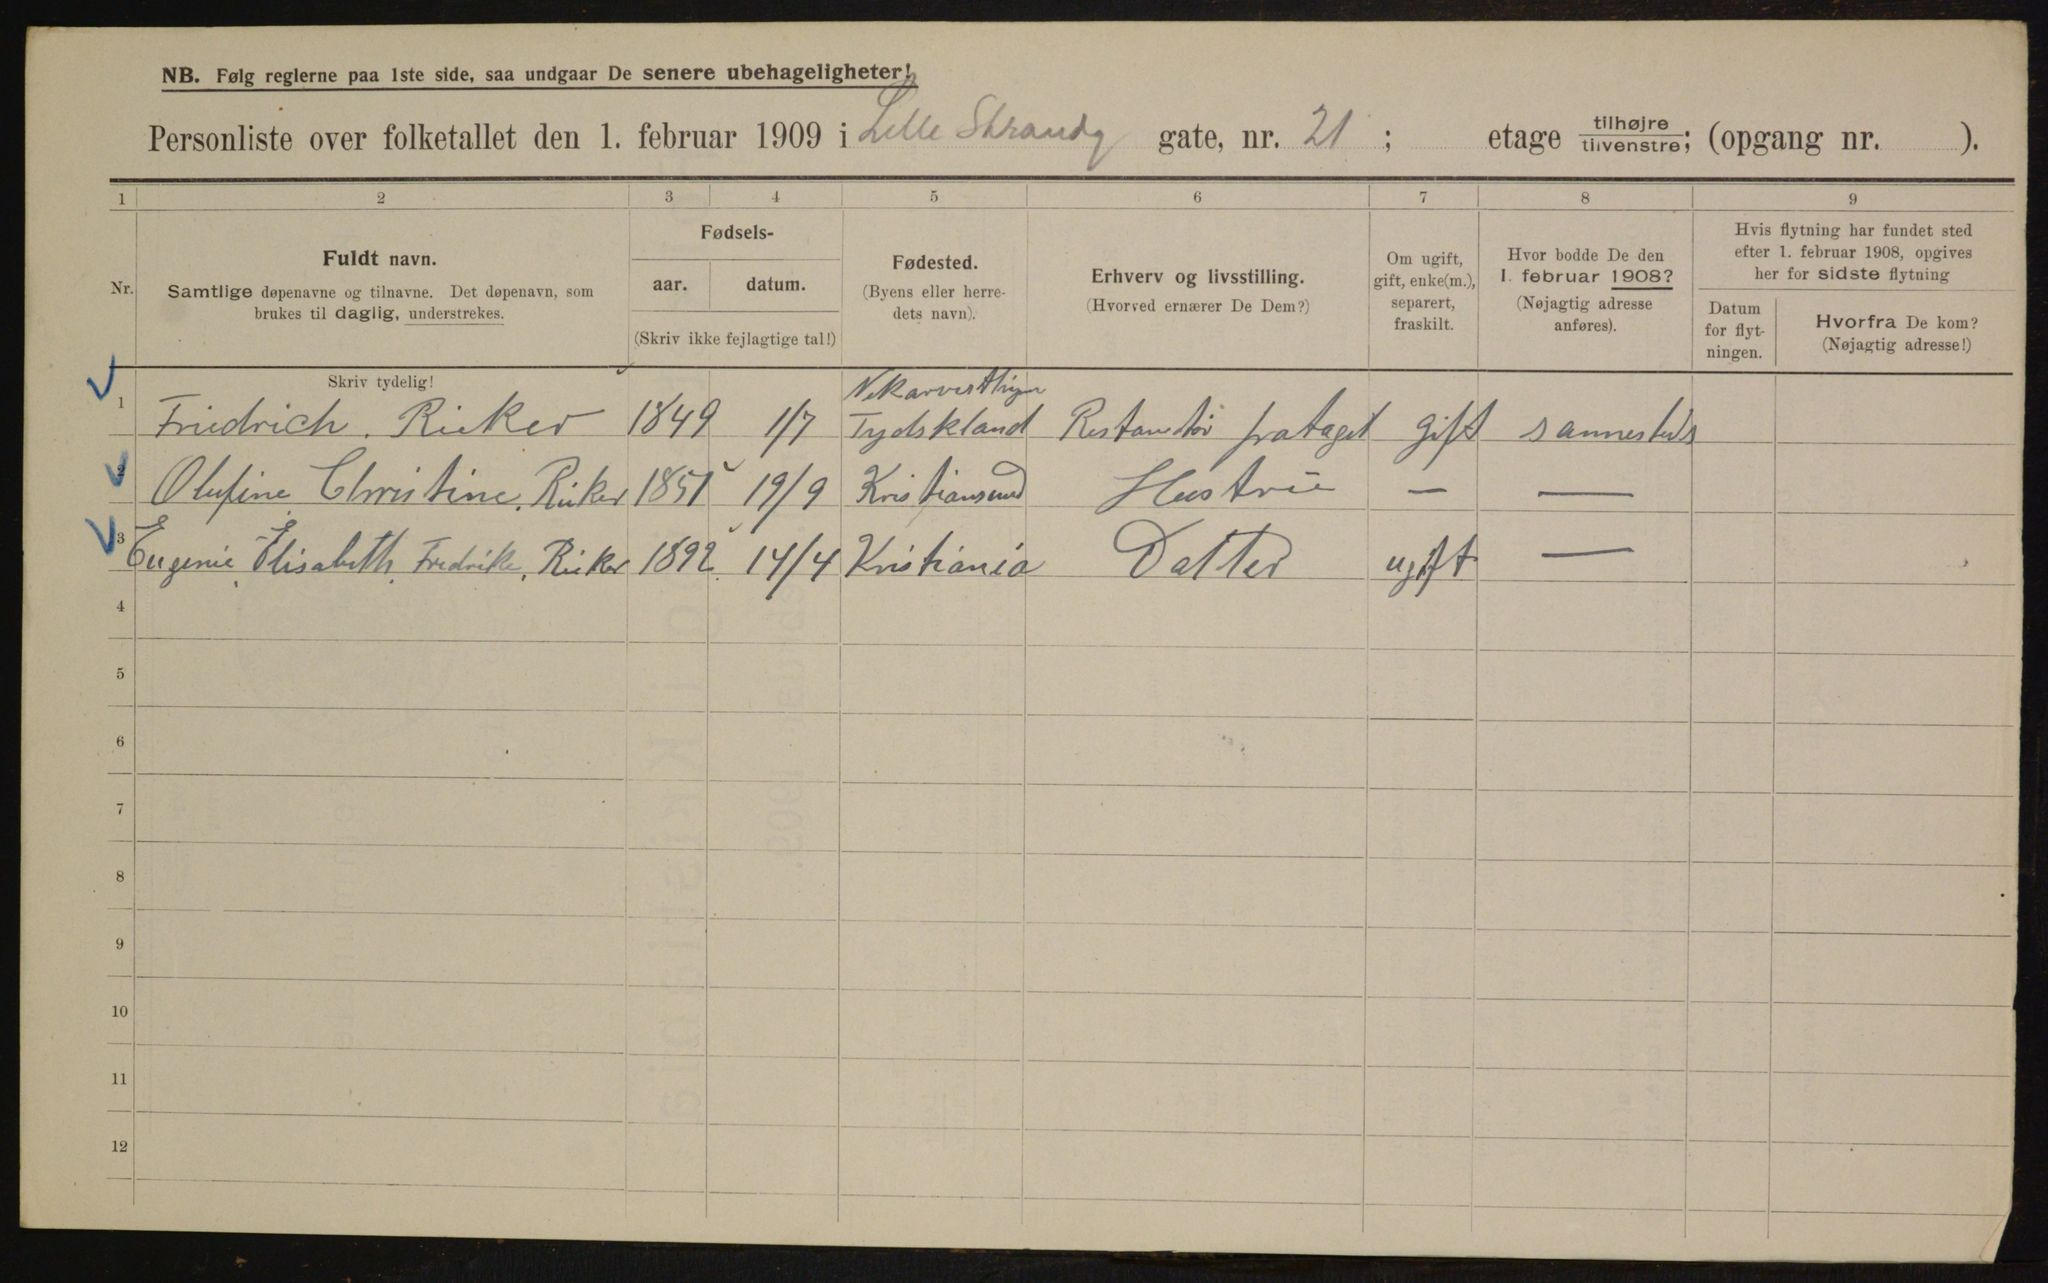 NB. Følg reglerne paa 1ste side, saa undgaar De senere ubehageligheter!
Personliste over folketallet den 1. februar 1909 i Lille Strandg gate, nr. 21 ; etage tilhøjre/tilvenstre; (opgang nr. ).
1 2 3 4 5 6 7 8 9
Nr.
Fuldt navn.
Samtlige døpenavne og tilnavne. Det døpenavn, som
brukes til daglig, understrekes.
Fødsels-
aar. datum.
(Skriv ikke fejlagtige tal!)
Fødested.
(Byens eller herre-
dets navn).
Erhverv og livsstilling.
(Hvorved ernærer De Dem?)
Om ugift,
gift, enke(m.),
separert,
fraskilt.
Hvor bodde De den
1. februar 1908?
(Nøjagtig adresse
anføres).
Hvis flytning har fundet sted
efter 1. februar 1908, opgives
her for sidste flytning
Datum
for flyt-
ningen.
Hvorfra De kom?
(Nøjagtig adresse!)
Skriv tydelig!
1 Friedrich. Rieker 1849 1/7 Tydskland gift
2 Olufine Christine. Rieker 1851 19/9 Kristiansund Hustru — —
3 Eugenie Elisabeth Fredrike. Rieker 1892 14/4 Kristiania Datter ugift —
4
5
6
7
8
9
10
11
12